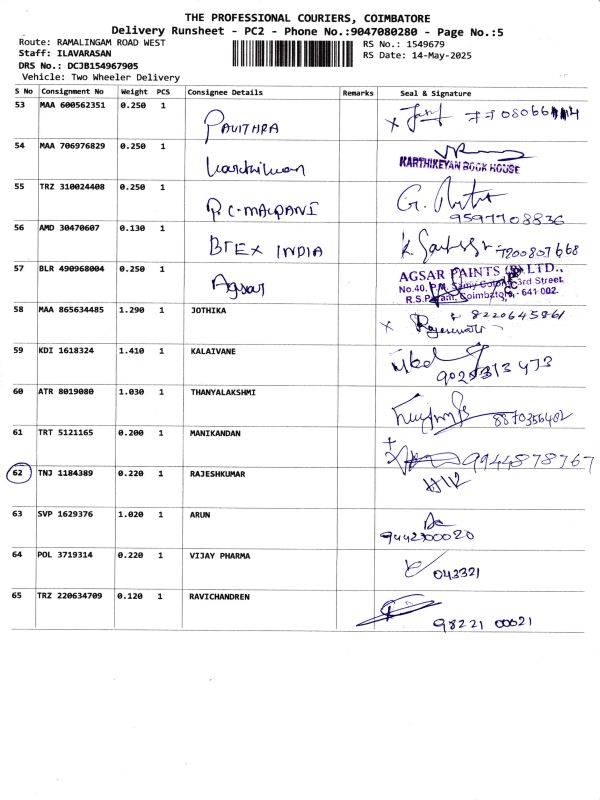 THE PROFESSIONAL COURIERS, COIMBATORE
Delivery Runsheet - PC2 - Phone No.:9047080280 - Page No.:5
Route: RAMALINGAM ROAD WEST
Staff: ILAVARASAN
DRS No.: DCJB154967905
Vehicle: Two Wheeler Delivery
RS No.: 1549679
RS Date: 14-May-2025
S No Consignment No Weight PCS Consignee Details Remarks Seal & Signature
53 MAA 600562351 0.250 1 PAVITHRA
54 MAA 706976829 0.250 1 KARTHIKEYAN BOOK HOUSE
55 TRZ 310024408 0.250 1 R.C. MALPANI G. 9597708836
56 AMD 30470607 0.130 1 BTEX INDIA 7200807668
57 BLR 490968004 0.250 1 Agsar AGSAR PAINTS (P) LTD.,
No.40, 3rd Street,
R.S.Puram, Coimbatore - 641 002.
58 MAA 865634485 1.290 1 JOTHIKA 8220645861
59 KDI 1618324 1.410 1 KALAIVANE
60 ATR 8019080 1.030 1 THANYALAKSHMI 8870356402
61 TRT 5121165 0.200 1 MANIKANDAN 9944878767
62 TNJ 1184389 0.220 1 RAJESHKUMAR
63 SVP 1629376 1.020 1 ARUN 9442300020
64 POL 3719314 0.220 1 VIJAY PHARMA 043321
65 TRZ 220634709 0.120 1 RAVICHANDREN 98221 00021